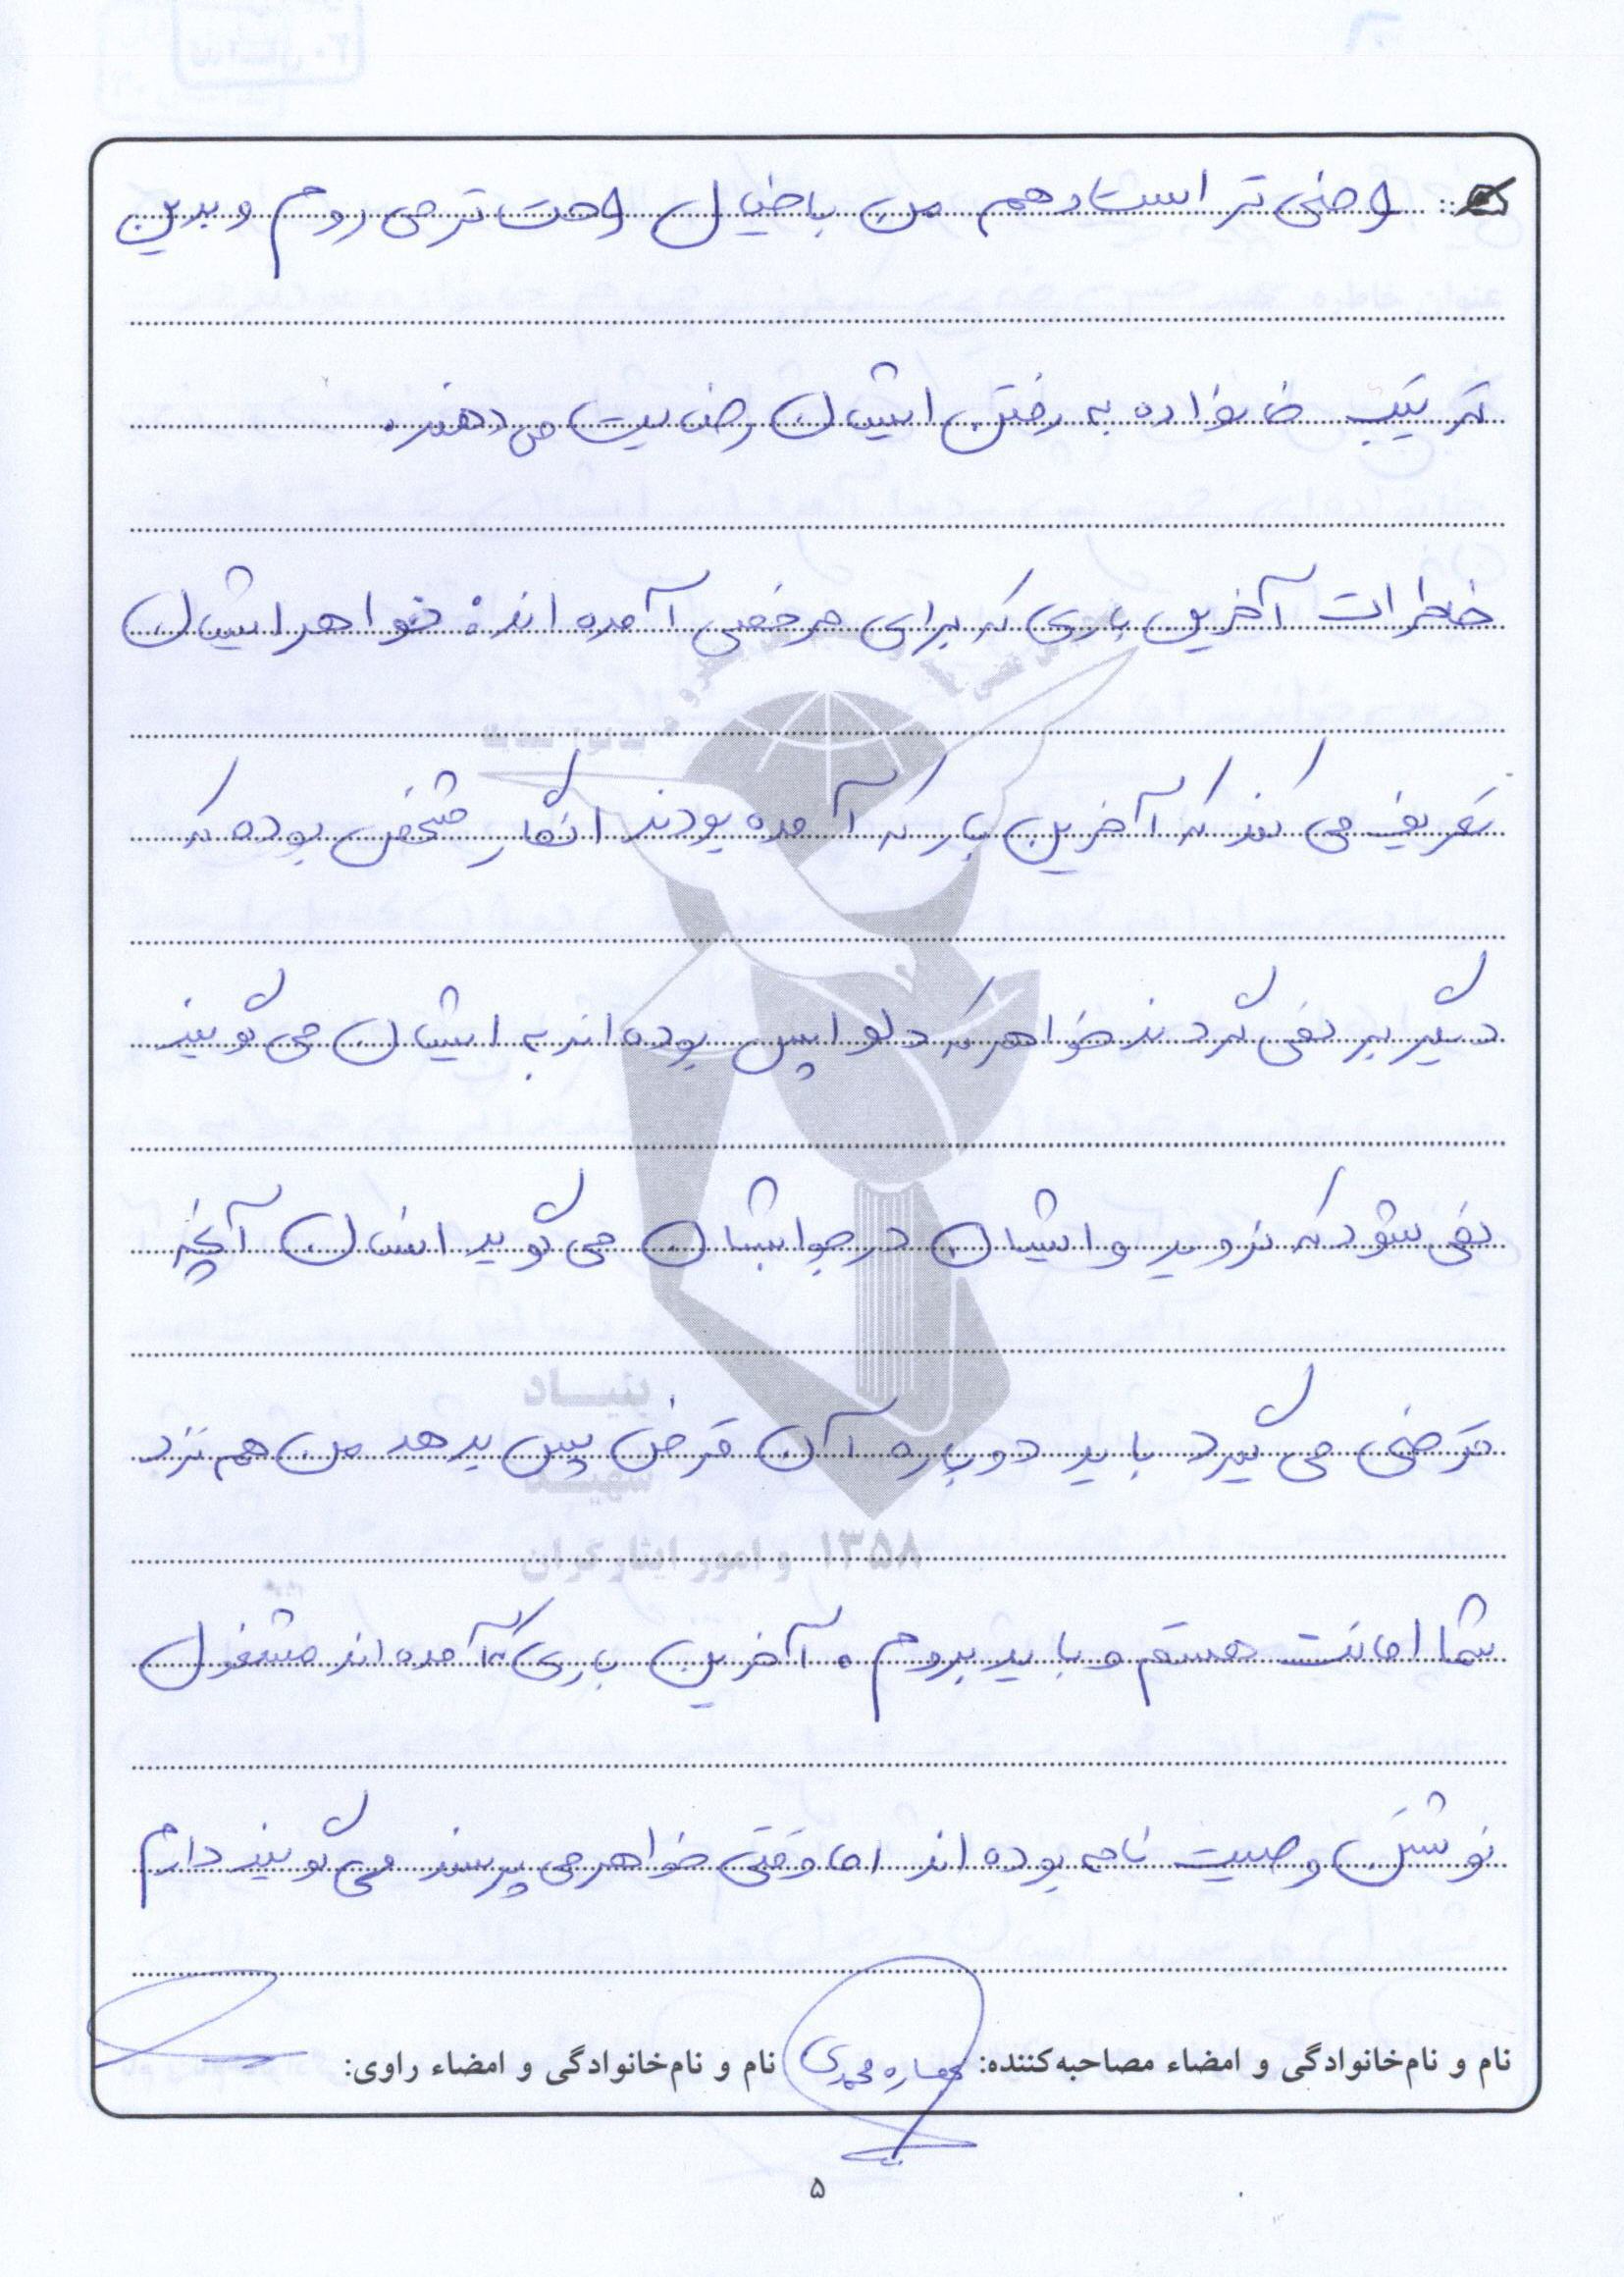 راضی تر است و هم من با خیال راحت تر می روم و بدین
ترتیب خانواده به رفتن ایشان رضایت می دهند.
خاطرات آخرین باری که برای مرخصی آمده اند: خواهر ایشان
تعریف می کند که آخرین بار که آمده بودند انگار مشخص بوده که
دیگر بر نمی گردند خواهر که دلواپس بوده اند به ایشان می گویند
نمی شود که نروید و ایشان در جوابشان می گوید انسان آنچه
قرضی می گیرد باید دوباره آن قرض پس بدهد من هم نزد
شما امانت هستم و باید بروم. آخرین باری که آمده اند مشغول
نوشتن وصیت نامه بوده اند اما وقتی خواهر می پرسند می گویند دارم
بنیاد
شهید
و امور ایثارگران ۱۳۵۸
نام و نام‌خانوادگی و امضاء مصاحبه‌کننده: محمدی نام و نام‌خانوادگی و امضاء راوی:
۵